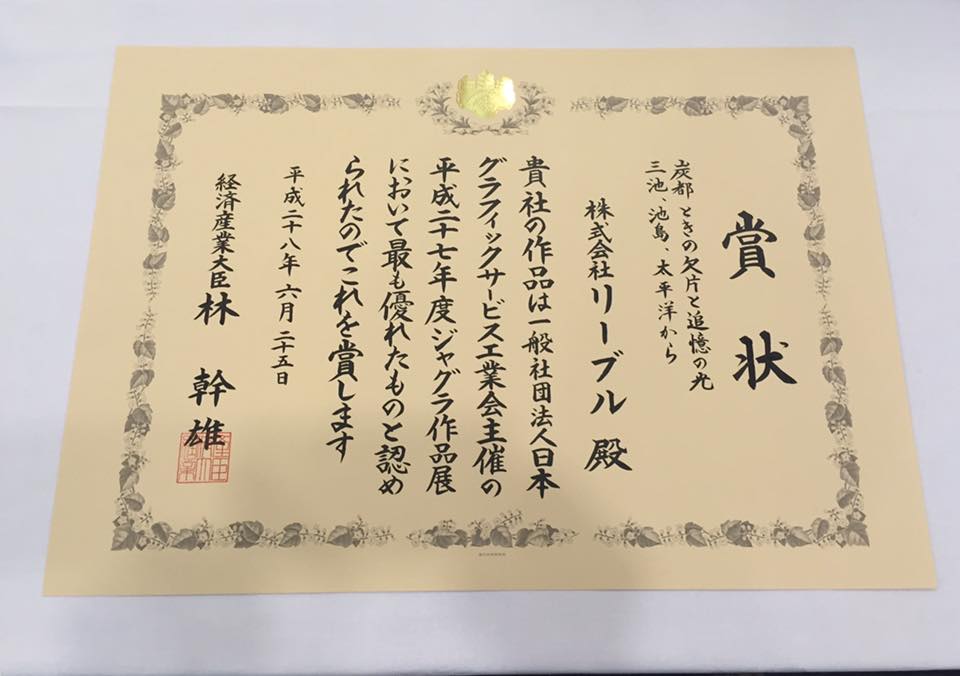 賞状
炭都 ときの欠片と追憶の光
三池、池島、太平洋から
株式会社リーブル 殿
貴社の作品は一般社団法人日本
グラフィックサービス工業会主催の
平成二十七年度ジャグラ作品展
において最も優れたものと認め
られたのでこれを賞します
平成二十八年六月二十五日
経済産業大臣 林 幹雄